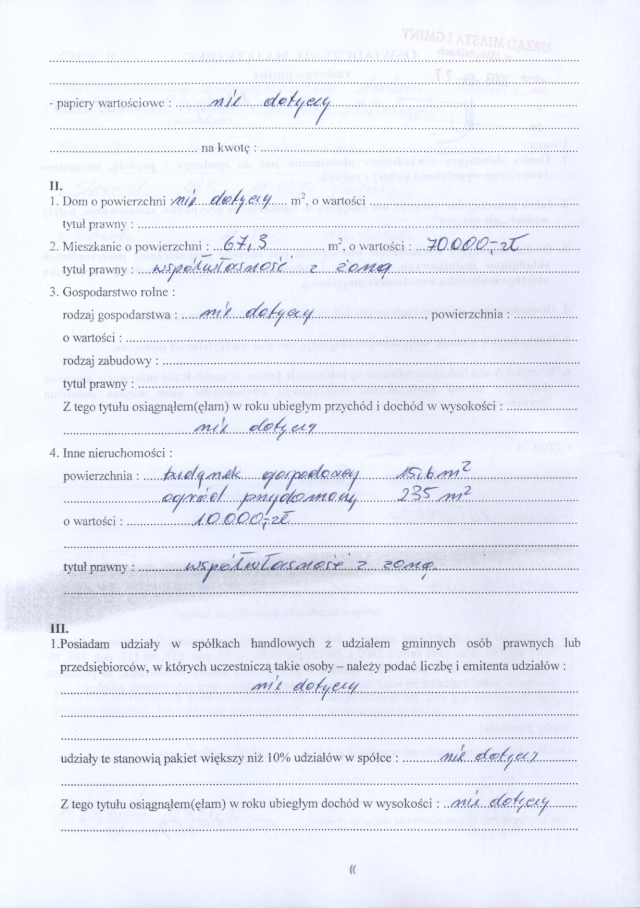 URZĄD MIASTA I GMINY
- papiery wartościowe : nie dotyczy
na kwotę :
II.
1. Dom o powierzchni : nie dotyczy m², o wartości
tytuł prawny :
2. Mieszkanie o powierzchni : 67,3 m², o wartości : 70.000,- zł
tytuł prawny : współwłasność z żoną
3. Gospodarstwo rolne :
rodzaj gospodarstwa : nie dotyczy , powierzchnia :
o wartości :
rodzaj zabudowy :
tytuł prawny :
Z tego tytułu osiągnąłem(ęłam) w roku ubiegłym przychód i dochód w wysokości :
nie dotyczy
4. Inne nieruchomości :
powierzchnia : budynek gospodarczy 15,6 m²
ogród przydomowy 235 m²
o wartości : 10.000,- zł
tytuł prawny : współwłasność z żoną.
III.
1.Posiadam udziały w spółkach handlowych z udziałem gminnych osób prawnych lub
przedsiębiorców, w których uczestniczą takie osoby – należy podać liczbę i emitenta udziałów :
nie dotyczy
udziały te stanowią pakiet większy niż 10% udziałów w spółce : nie dotyczy
Z tego tytułu osiągnąłem(ęłam) w roku ubiegłym dochód w wysokości : nie dotyczy